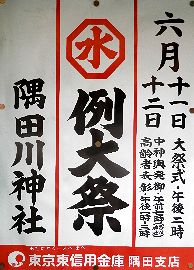 六月
十一日
十二日
大祭式・午後二時
中神輿発御・午前七時
高齢者表彰・午後一時〜三時
水
例大祭
隅田川神社
東京東信用金庫 隅田支店